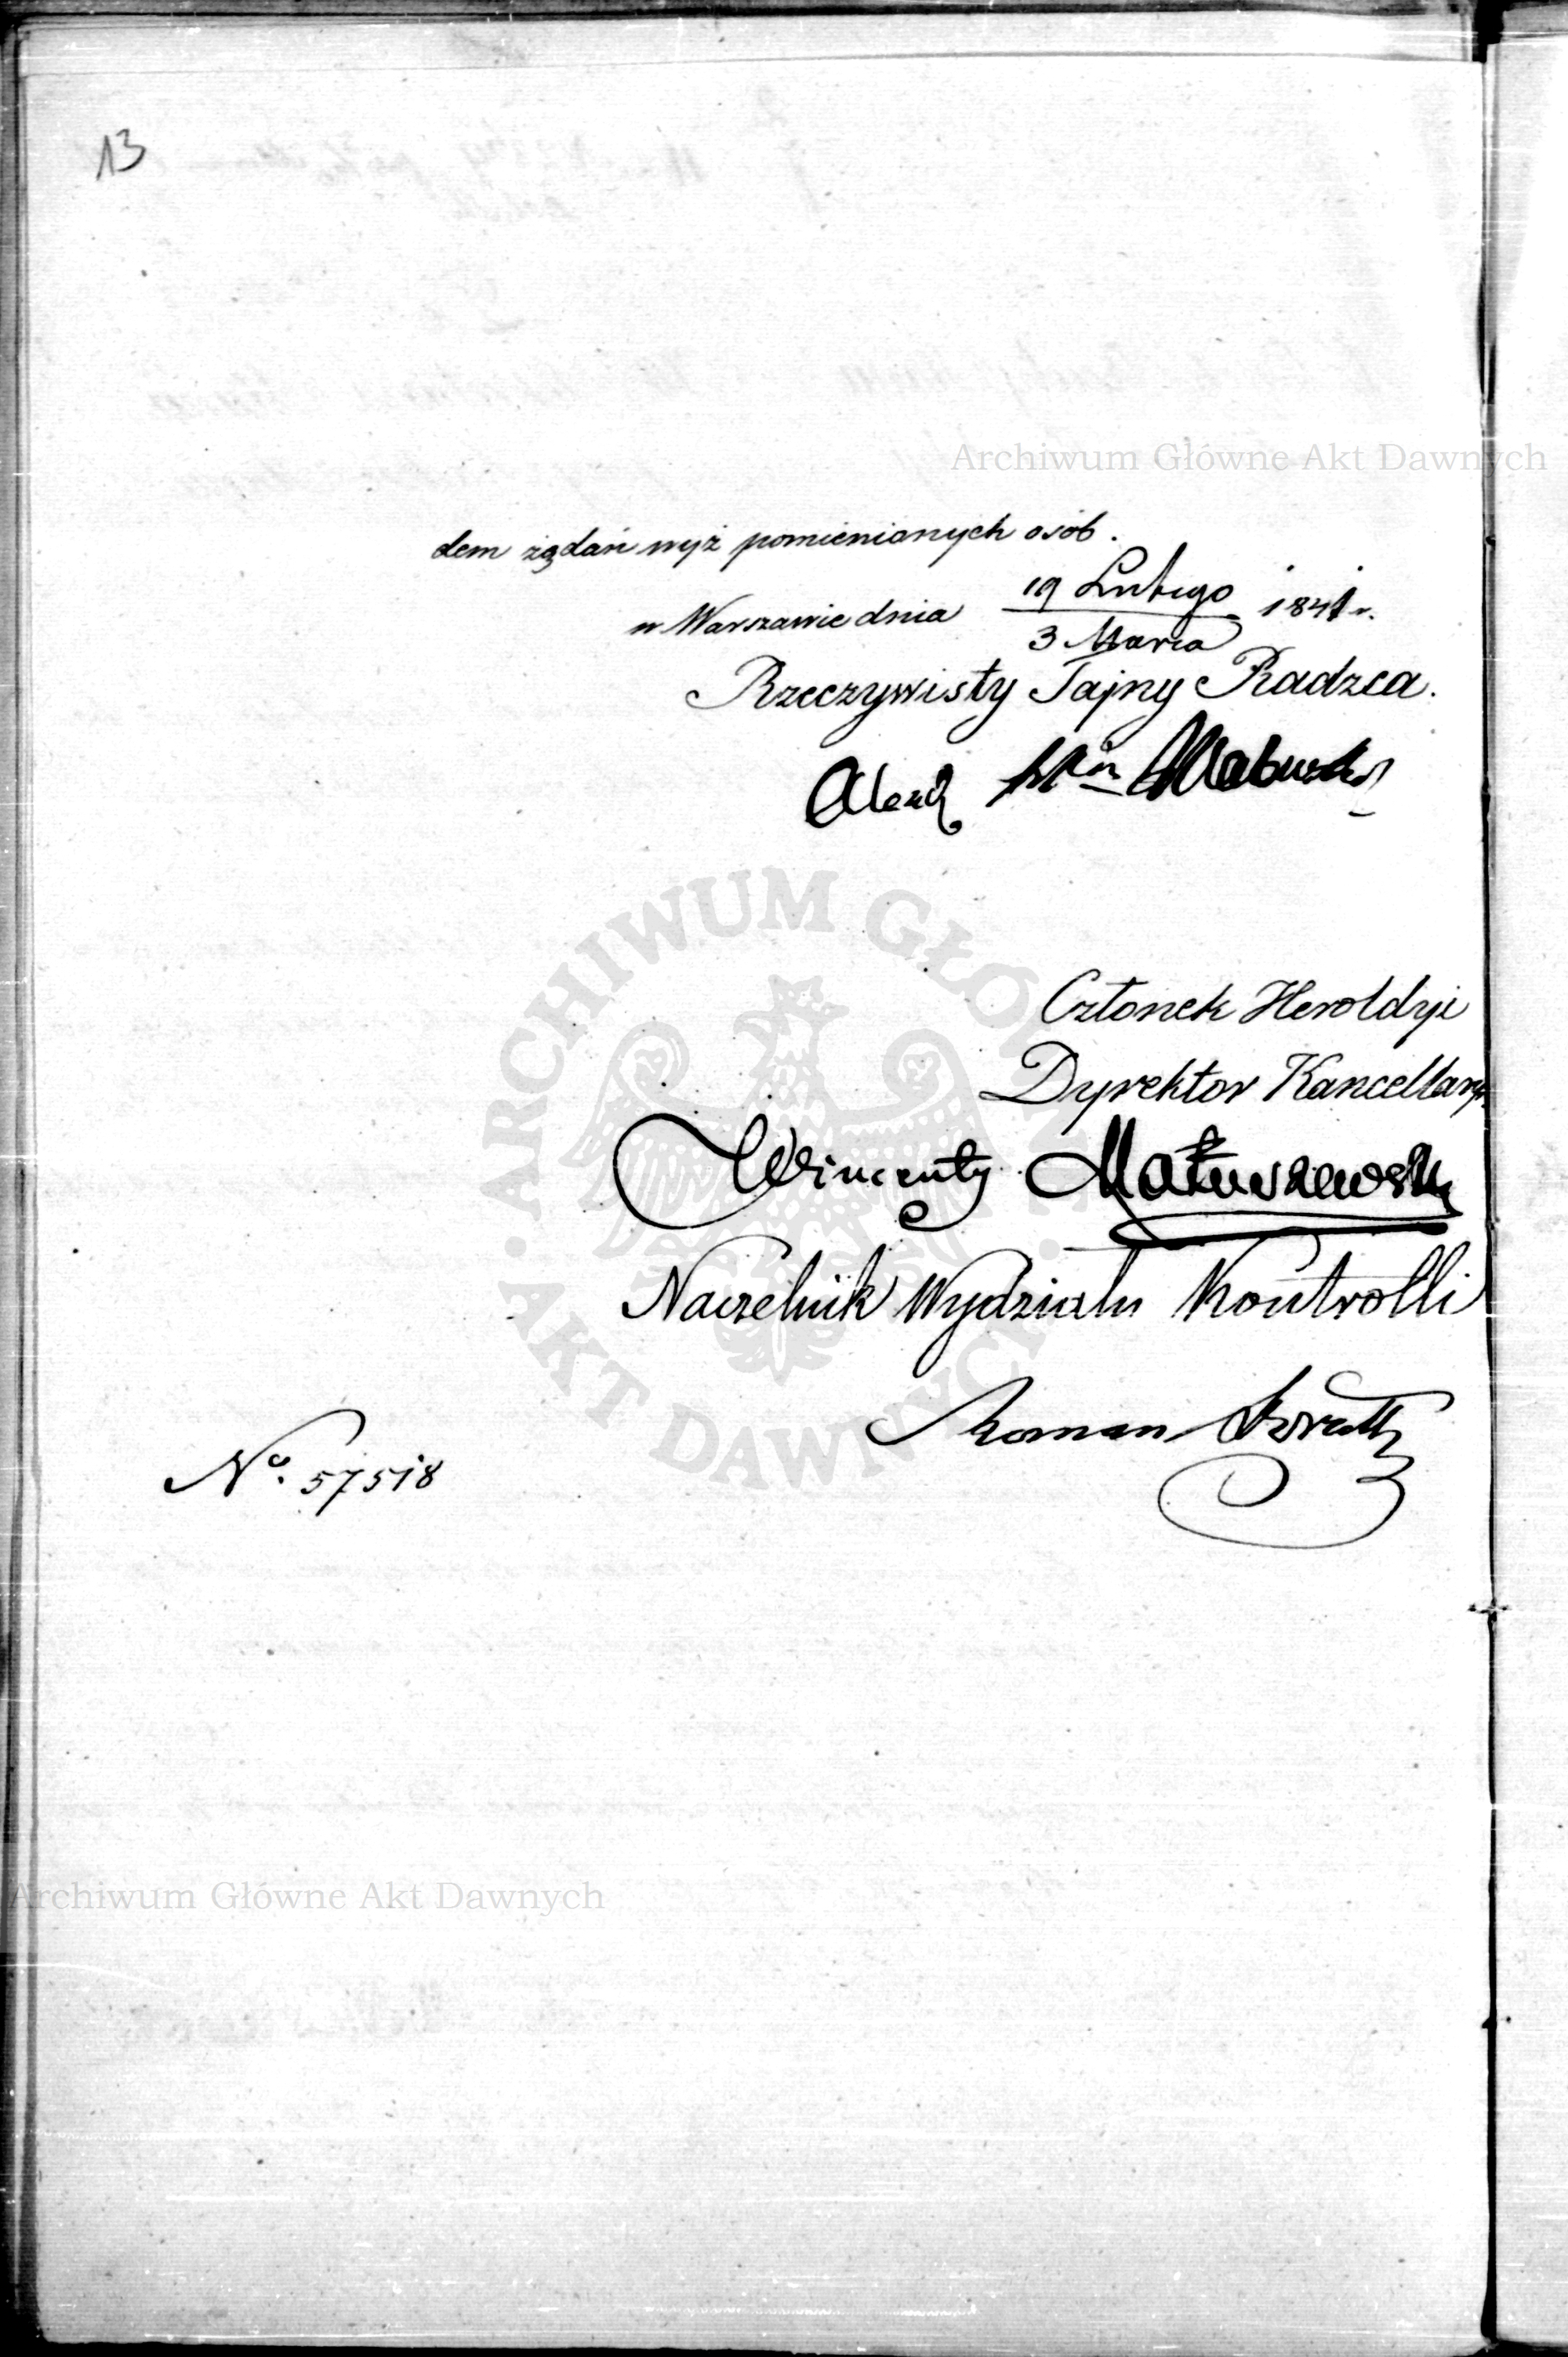 13
Archiwum Główne Akt Dawnych
dem żądań wyż pomienionych osób.
w Warszawie dnia 19 Lutego / 3 Marca 1841 r.
Rzeczywisty Tajny Radzca.
Członek Heroldyi
Dyrektor Kancellaryi
Wincenty Matuszewski
Naczelnik Wydziału Kontrolli
Roman
No. 57518
ARCHIWUM GŁÓWNE
AKT DAWNYCH
Archiwum Główne Akt Dawnych